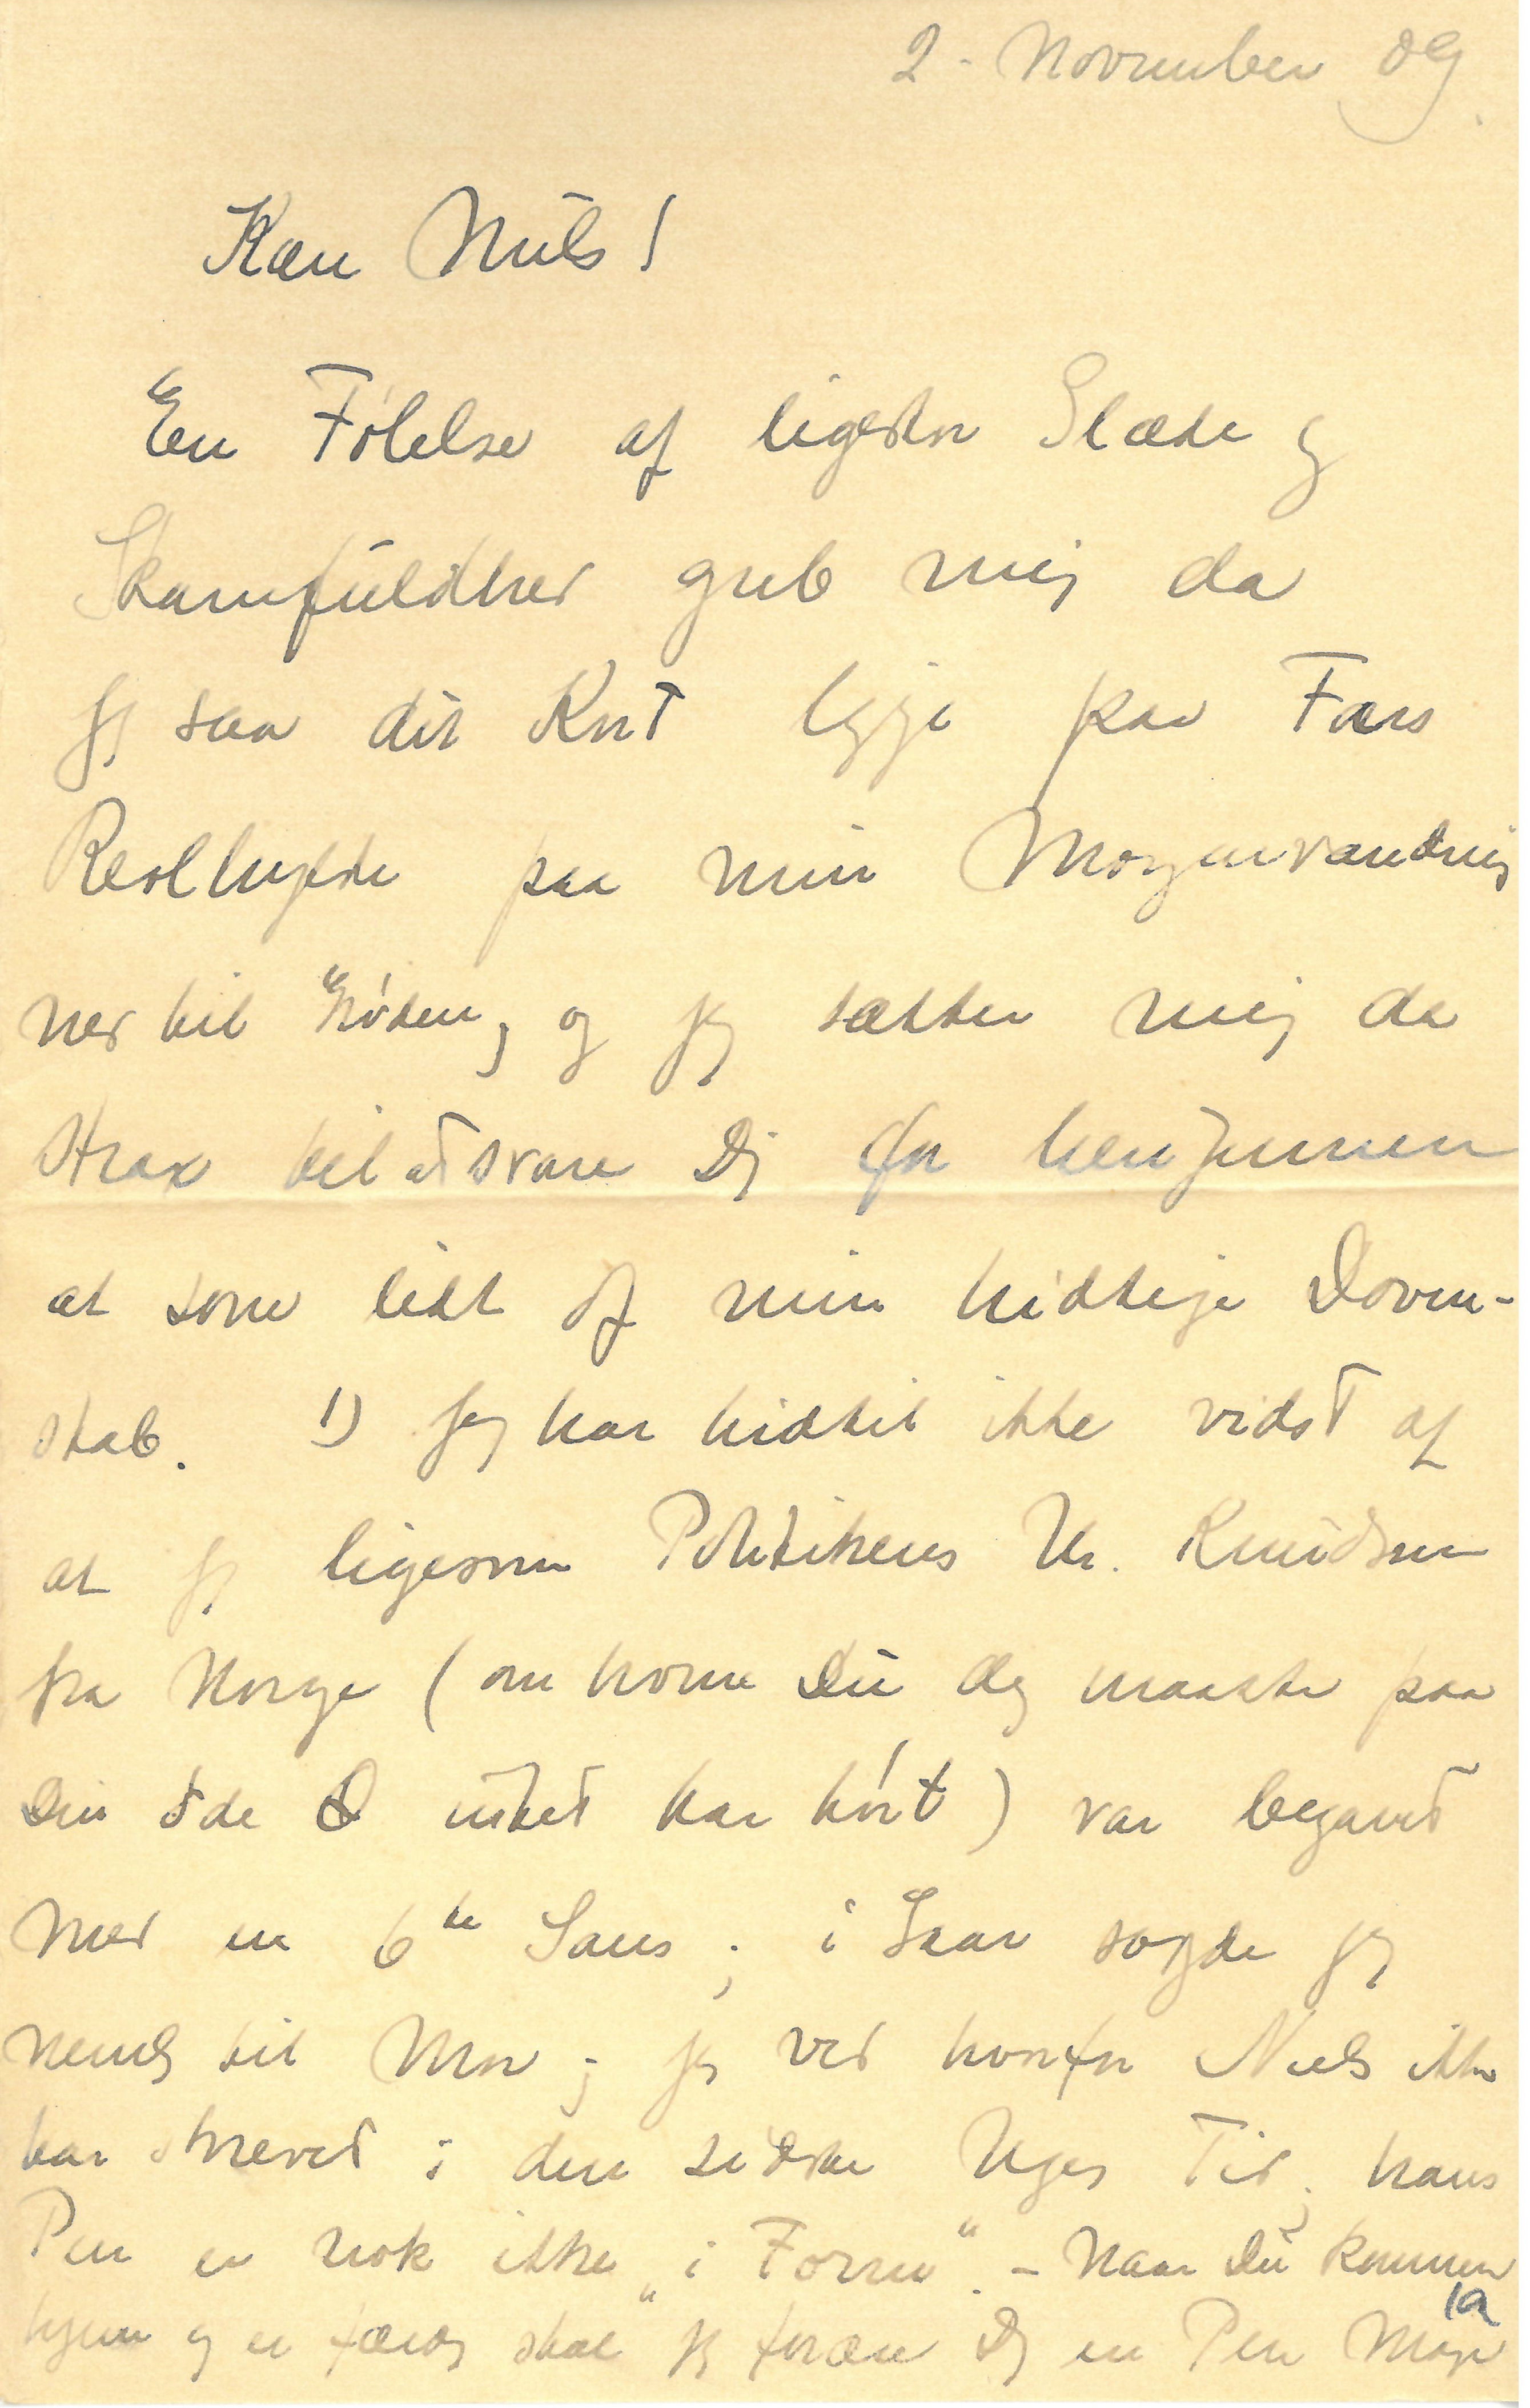 2. November 09.
Kære Niels!
En Følelse af ligestor Glæde og
Skamfuldhed greb mig da
jeg saa dit Kort ligge paa Fars
Reolhylde paa min Morgenvandring
ned til Føden, og jeg sætter mig da
strax til at svare Dig for herigennem
at sone lidt af min hidtige Doven-
skab. 1) Jeg har hidtil ikke vidst af
at jeg ligesom Politikens Hr. Knudsen
fra Norge (om hvem Du dog maaske paa
Din øde Ø intet har hørt) var begavet
med en 6te Sans; i Gaar sagde jeg
nemlig til Mor; jeg ved hvorfor Niels ikke
har skrevet i den sidste Uges Tid; hans
Pen er nok ikke "i Form". – Naar Du kommer
hjem og er færdig skal jeg forære Dig en Pen Magen
1a